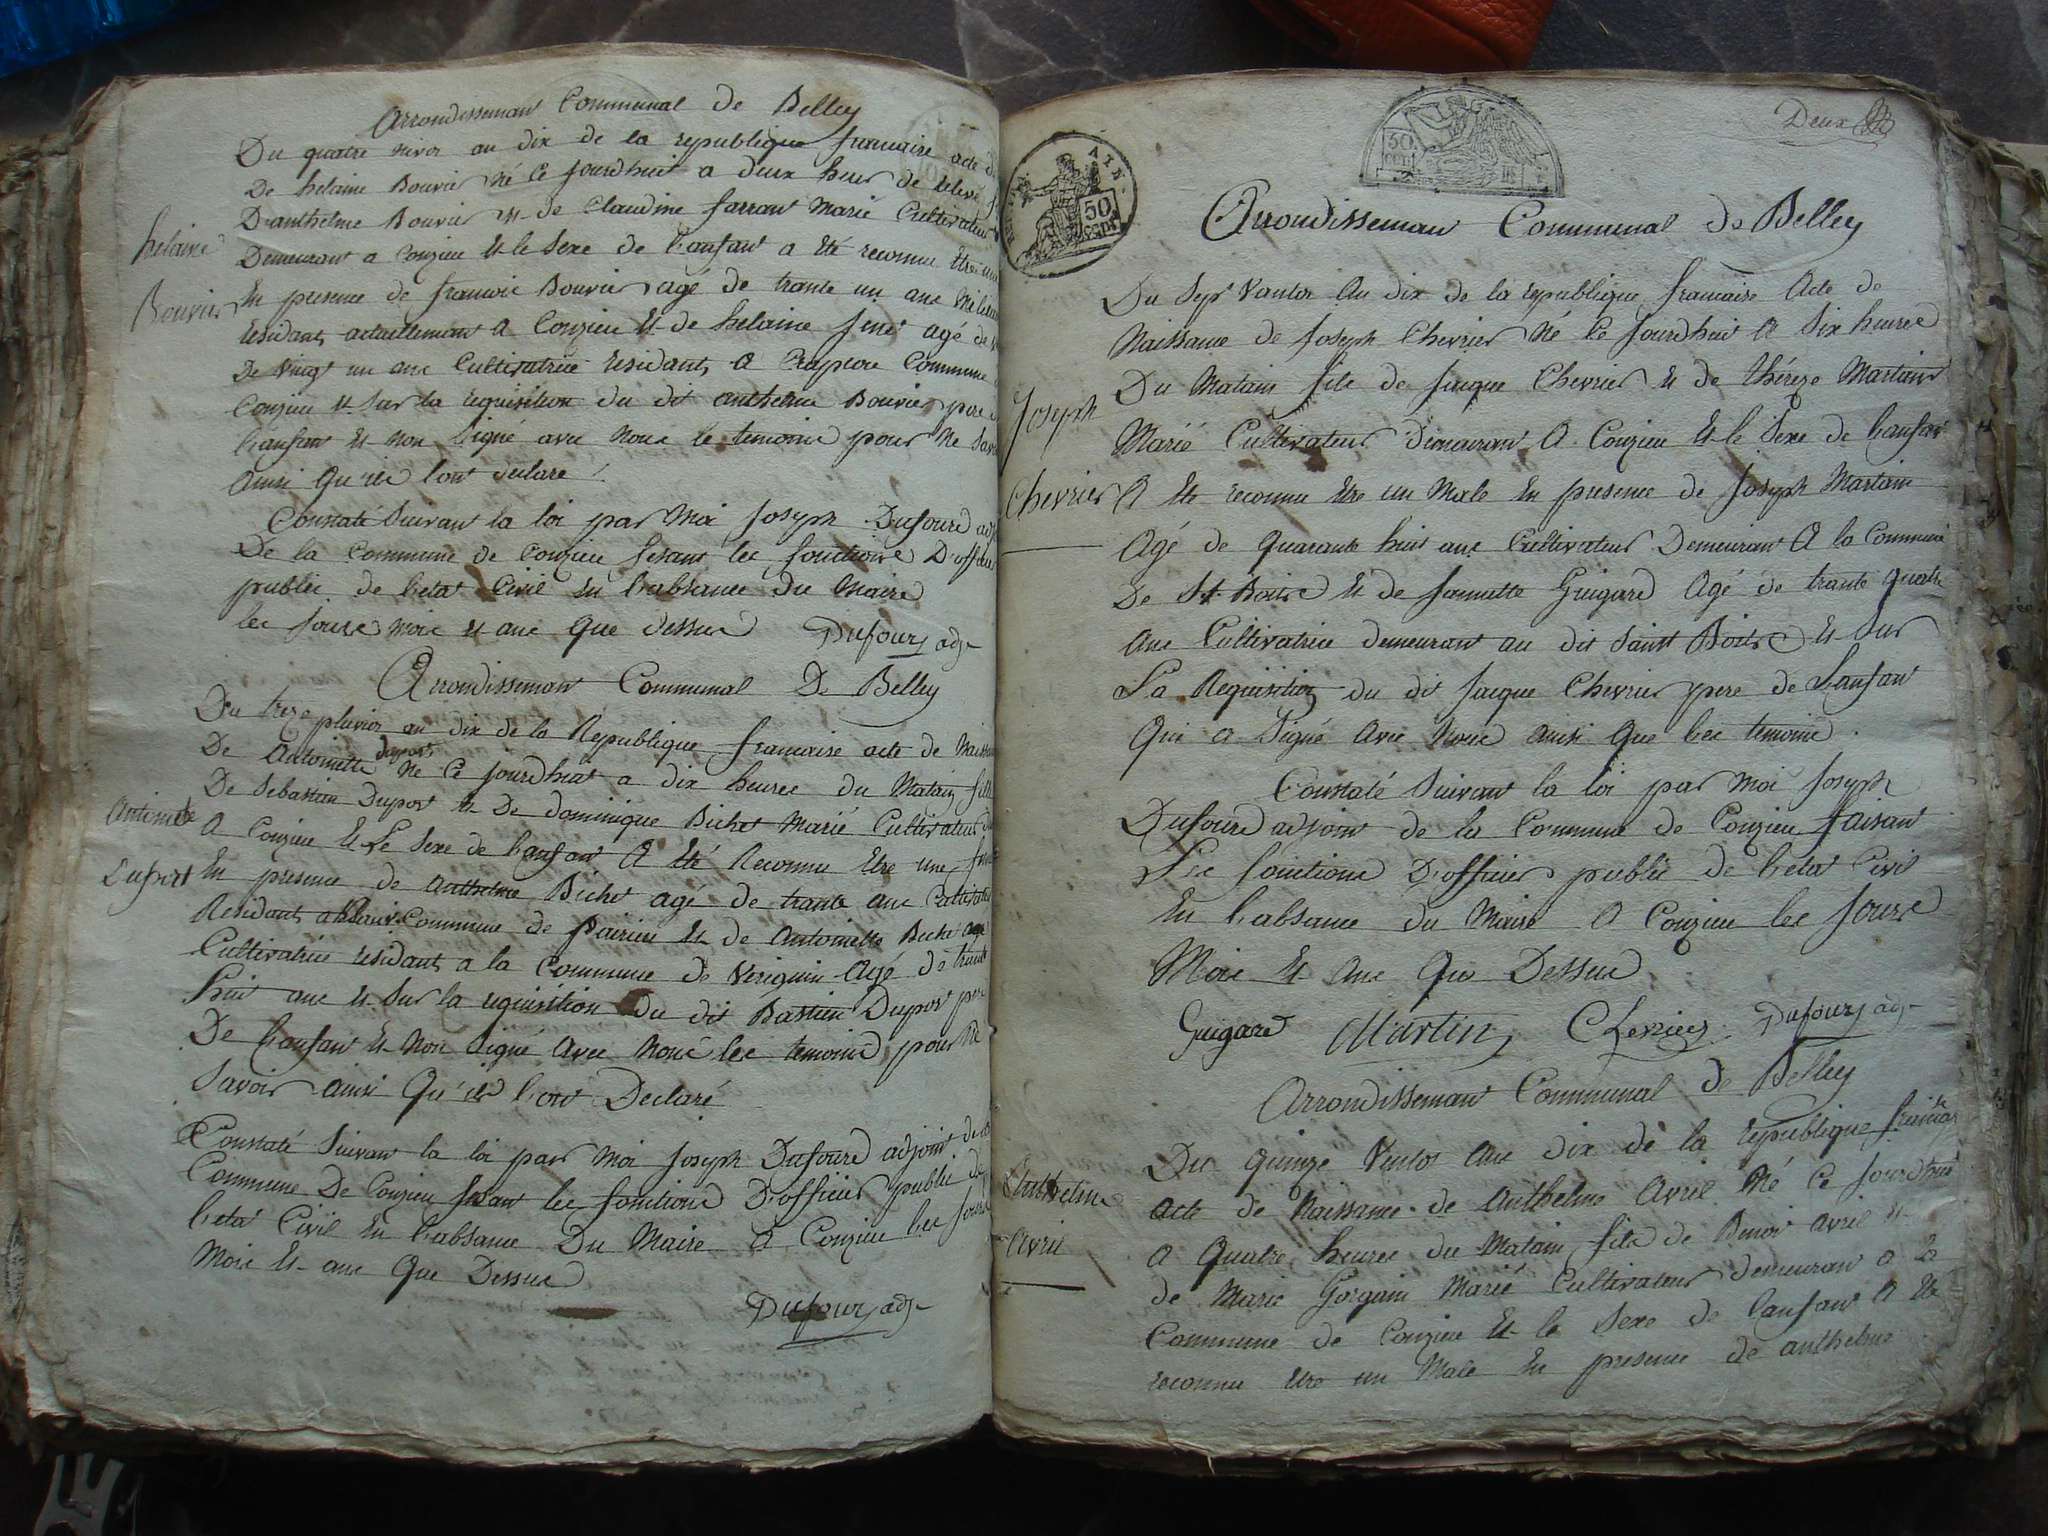 Arrondissemant Communal de Belley
Du quatre nivos an dix de la republique francaise acte de
De helaine Bouvier Né ce jourdhuit a deux heures de releve
D'anthelme Bouvier et de Claudine farrant Marié Cultivateur
Demeurant a Conzieu et le Sexe de l'anfant a été reconnu être une
helaine
En presence de francois Bouvier agé de trante un ans
Bouvier
residant actuellemant a Conzieu et de helaine agé de
De vingt un ans Cultivatrice residant a Crapeou Commune
Conzieu et Sur la requisition du dit anthelme Bouvier pere
l'anfant et non Signé avec nous le temoins pour ne Savoir
Ainsi Qu'ils l'ont declaré
Constaté Suivant la loi par Moi Joseph Dufourd adj
De la Commune de Conzieu fesant les fonctions D'officier
public de l'etat Civil en l'absance du Maire
les jours mois et ans que dessus Dufour adj
Arrondissemant Communal De Belley
Du treze pluvios an dix de la Republique francaise acte de Naissance
De Antoinette duport Né Ce jourdhuit a dix heures du Matain fille
De Sebastien Duport et De dominique Bichet Marié Cultivateur
Antoinette
A Conzieu et Le Sexe de l'anfant A Eté Reconnu Etre une
Duport
En presence de anthelme Bichet agé de trante ans Cultivateur
Residant a Commune de pairieu et de Antoinette Bichet age
Cultivatrice residant a la Commune de Verignin Agé de trante
huit ans et Sur la requisition du dit Bastien Duport pere
De l'anfant et Non Signé Avec nous les temoins pour Ne
Savoir ainsi Qu'ils l'ont Declaré
Constaté Suivant la loi par Moi Joseph Dufourd adjoint de la
Commune De Conzieu fesant les fonctions D'officier public de
l'etat Civil En l'absance Du Maire A Conzieu les jours
Mois Et ans Que Dessus
Dufour adj
Deux
50
CENT
50
CENT
Arrondissemant Communal de Belley
Du Sept Vantos An dix de la republique francaise Acte de
Naissance de Joseph Chevrier Né Ce Jourdhuit A Six heures
Du Matain fils de Jacque Chevrier et de théreze Martain
Joseph
Marié Cultivateur demeurant A Conzieu et le Sexe de l'anfant
Chevrier
A été reconnu être un Male En presence de Joseph Martain
Agé de Quarante huit ans Cultivateur Demeurant A la Commune
De St Bois et de fannette Guigard Agé de trante quatre
Ans Cultivatrice demeurant au dit Saint Bois et Sur
La Requisition du dit Jacque Chevrier pere de L'anfant
Qui a Signé Avec Nous ainsi Que les temoins
Constaté Suivant la loi par Moi Joseph
Dufourd adjoint de la Commune de Conzieu faisant
Les fonctions D'officier public de l'etat Civil
En l'absance du Maire A Conzieu les jours
Mois Et ans Que Dessus
Guigard Martin Chevrier Dufour adj
Arrondissemant Communal de Belley
Du quinze Ventos an dix de la republique francaise
Anthelme
acte de Naissance de Anthelme Avril Né Ce jourdhui
Avril
A Quatre heures du Matain fils de Benoi Avril et
de Marie Gorgain Marié Cultivateur demeurant a la
Commune de Conzieu et le Sexe de l'anfant A été
reconnu etre un Male En presence de anthelme